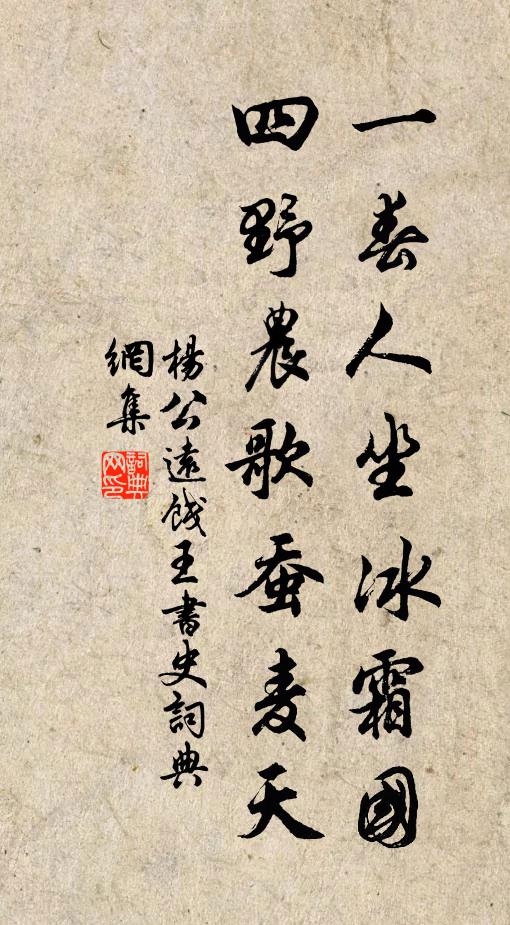 一春人坐冰霜國
四野農歌蚕麦天
楊公遠餞王書史詞典
網集
詞典
网印